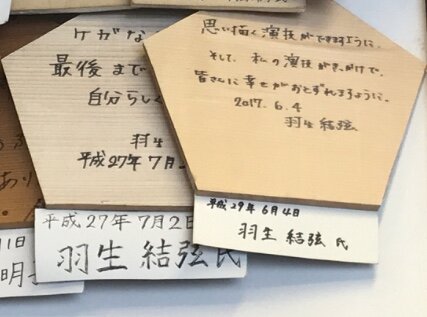 ケガな
最後まで
自分らしく
羽生
平成27年7月
平成27年7月2日
羽生 結弦 氏
思い描く演技ができますように。
そして、私の演技がきっかけで、
皆さんに幸せがおとずれますように。
2017.6.4
羽生 結弦
平成29年6月4日
羽生 結弦 氏
あり
11日
明